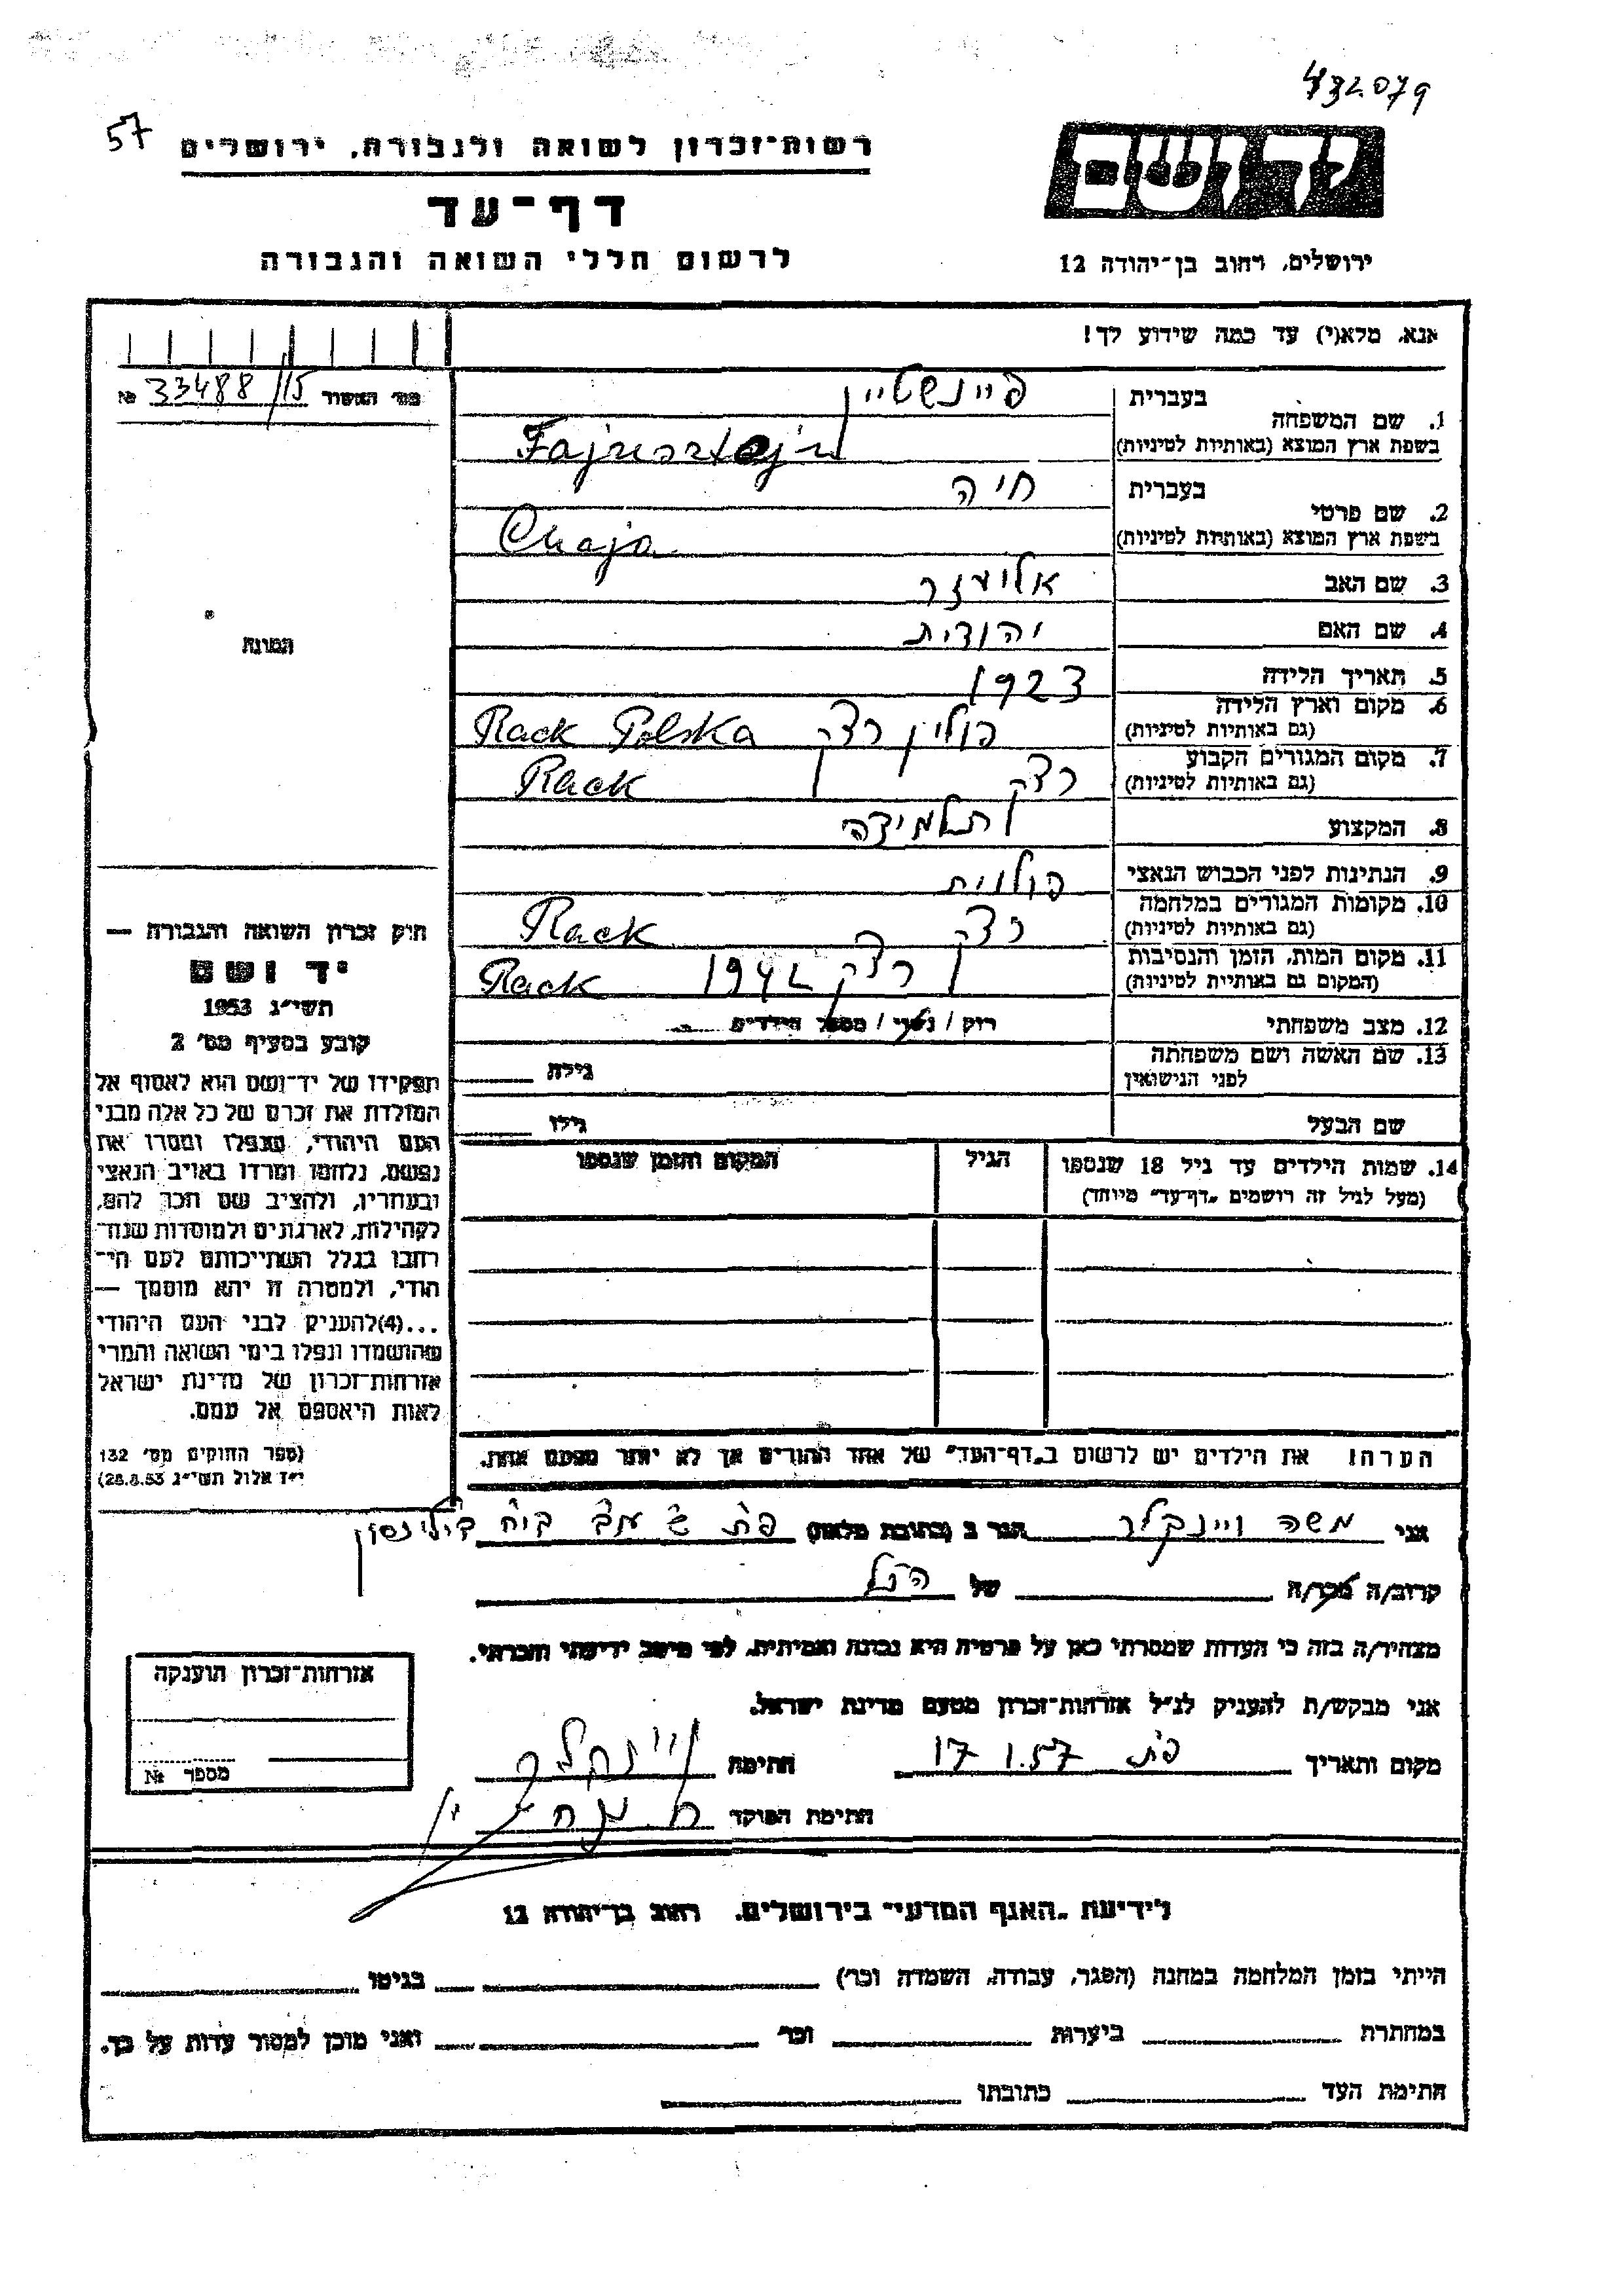 432079
57
רשות-זכרון לשואה ולגבורה, ירושלים
דף-עד
לרשום חללי השואה והגבורה
ידושם
ירושלים, רחוב בן-יהודה 12
אנא, מלא(י) עד כמה שידוע לך!
מס׳ האשור № 33488/15
1. שם המשפחה בעברית פיינשטיין
בשפת ארץ המוצא (באותיות לטיניות) Fajnsztajn
2. שם פרטי בעברית חיה
בשפת ארץ המוצא (באותיות לטיניות) Chaja
3. שם האב אליעזר
4. שם האם יהודית
5. תאריך הלידה 1923
6. מקום וארץ הלידה פולין רצק Rack Polska
(גם באותיות לטיניות)
7. מקום המגורים הקבוע רצק Rack
(גם באותיות לטיניות)
8. המקצוע תלמידה
9. הנתינות לפני הכבוש הנאצי פולנית
10. מקומות המגורים במלחמה רצק Rack
(גם באותיות לטיניות)
11. מקום המות, הזמן והנסיבות רצק 1942 Rack
(המקום גם באותיית לטיניות)
12. מצב משפחתי רוק/נשוי/מספר הילדים
13. שם האשה ושם משפחתה גילה
לפני הנישואין
שם הבעל גילו
14. שמות הילדים עד גיל 18 שנספו הגיל המקום והזמן שנספו
(מעל לגיל זה רושמים „דף-עד״ מיוחד)
הערה: את הילדים יש לרשום ב„דף-העד״ של אחד ההורים אך לא יותר מפעם אחת.
התמונה
חוק זכרון השואה והגבורה —
יד ושם
תשי״ג 1953
קובע בסעיף מס׳ 2
תפקידו של יד-ושם הוא לאסוף אל
המולדת את זכרם של כל אלה מבני
העם היהודי, שנפלו ומסרו את
נפשם, נלחמו ומרדו באויב הנאצי
ובעוזריו, ולהציב שם וזכר להם,
לקהילות, לארגונים ולמוסדות שנח-
רבו בגלל השתייכותם לעם הי-
הודי, ולמטרה זו יהא מוסמך —
...(4)להעניק לבני העם היהודי
שהושמדו ונפלו בימי השואה והמרי
אזרחות-זכרון של מדינת ישראל
לאות היאספם אל עמם.
(ספר החוקים מס׳ 132
י״ד אלול תשי״ג 28.8.53)
אני משה ויינקלר הגר ב (כתובת מלאה) פ״ת
קרוב/ה מכר/ה של הנ״ל
מצהיר/ה בזה כי העדות שמסרתי כאן על פרטיה היא נכונה ואמיתית, לפי מיטב ידיעתי והכרתי.
אני מבקש/ת להעניק לנ״ל אזרחות-זכרון מטעם מדינת ישראל.
מקום ותאריך פ״ת 17 1.57 חתימה ויינקלר
חתימת הפוקד
אזרחות-זכרון הוענקה
מספר №
לידיעת „האגף המדעי״ בירושלים. רחוב בן-יהודה 12
הייתי בזמן המלחמה במחנה (הסגר, עבודה, השמדה וכר׳) בגיטו
במחתרת ביערות וכר׳ ואני מוכן למסור עדות על כך.
חתימת העד כתובתו